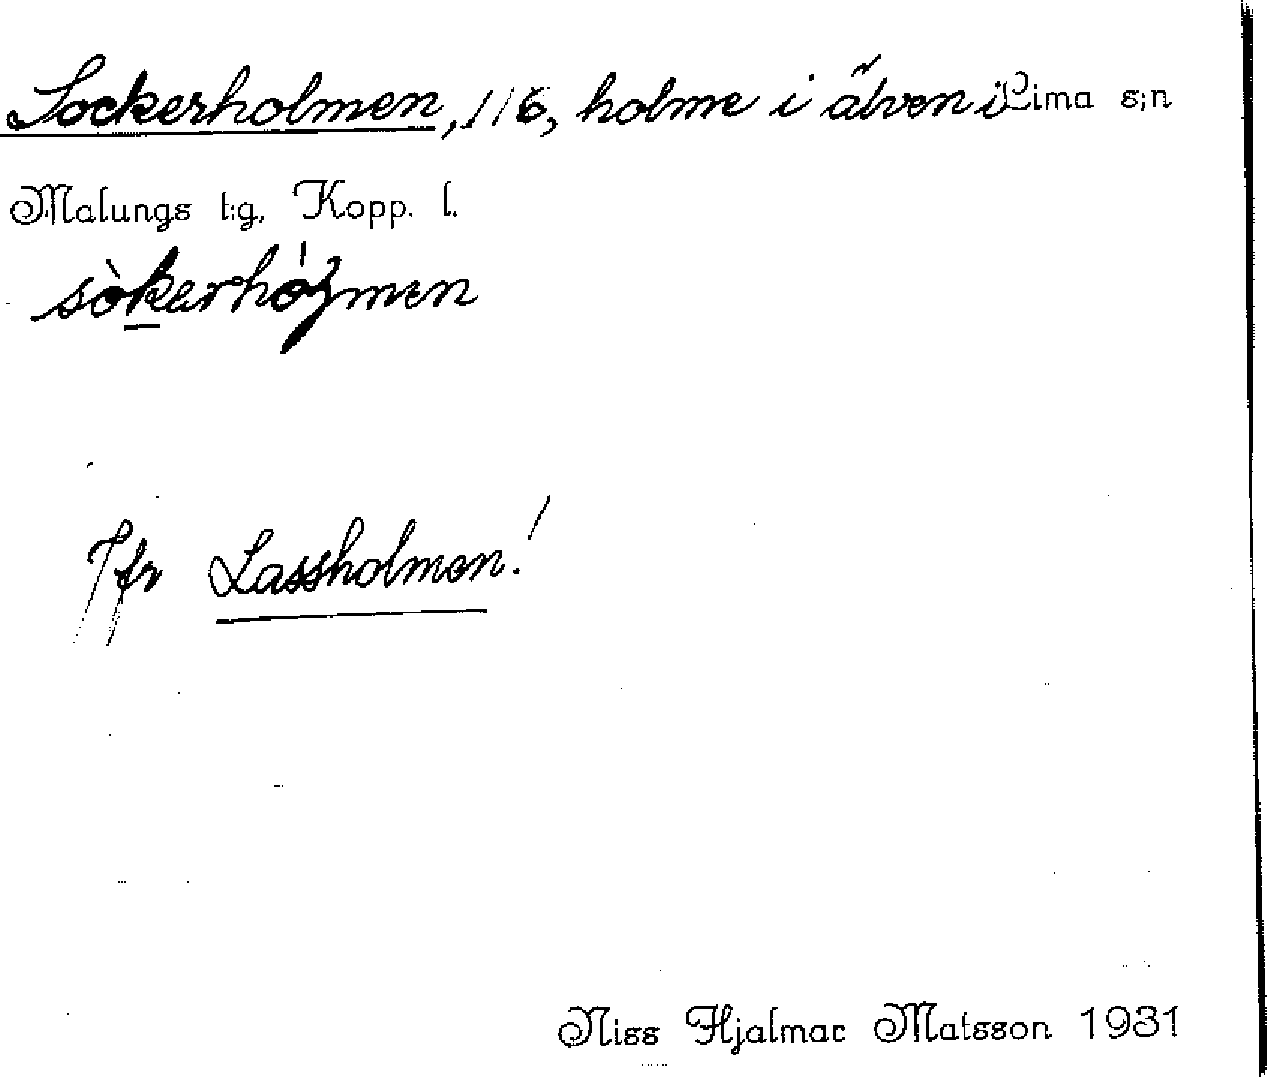 Sockerholmen, 116, holme i älven i Lima s;n
Malungs t:g, Kopp. l.
sòkerhólmen
Jfr Lassholmen!
Niss Hjalmar Matsson 1931